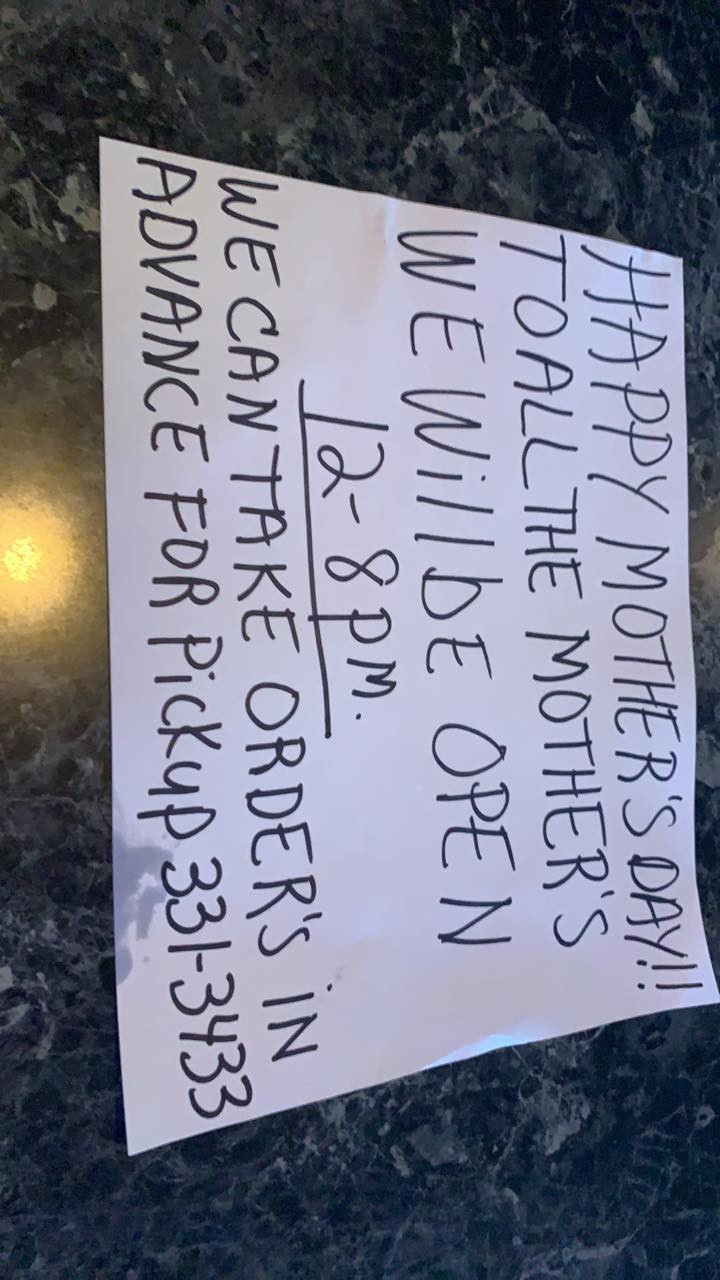 HAPPY MOTHER'S DAY!!
TO ALL THE MOTHER'S
WE WillbE OPEN
12-8pm.
WE CAN TAKE ORDER'S IN
ADVANCE FOR PickUp 331-3433